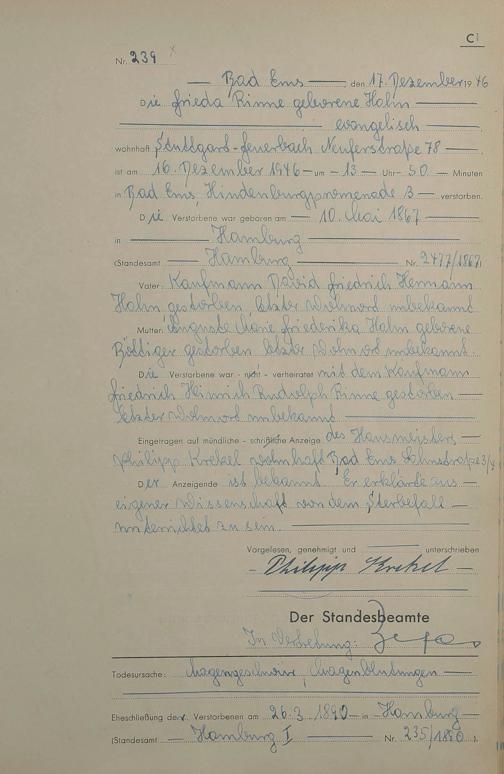 C1
Nr. 239
Bad Ems, den 17. Dezember 1946
Die Frieda Rinne geborene Hahn
evangelisch
wohnhaft Stuttgard-Feuerbach Neuferstraße 78
ist am 16. Dezember 1946 um 13 Uhr 50 Minuten
in Bad Ems, Hindenburgpromenade 3 verstorben.
Die Verstorbene war geboren am 10. Mai 1867
in Hamburg
(Standesamt Hamburg Nr. 2477/1867)
Vater: Kaufmann David Friedrich Hermann
Hahn gestorben, letzter Wohnord unbekannt
Mutter: Auguste Marie Friederika Hahn geborene
Böttiger gestorben letzter Wohnord unbekannt.
Die Verstorbene war - nicht - verheiratet mit dem Kaufmann
Friedrich Heinrich Rudolph Rinne gestorben
letzter Wohnord unbekannt
Eingetragen auf mündliche - schriftliche Anzeige des Hausmeisters
Philipp Krekel wohnhaft Bad Ems
Der Anzeigende ist bekannt. Er erklärte aus
eigener Wissenschaft von dem Sterbefall
unterrichtet zu sein.
Vorgelesen, genehmigt und unterschrieben
Philipp Krekel
Der Standesbeamte
In Vertretung:
Todesursache: Magengeschwür, Magenblutungen
Eheschließung der Verstorbenen am 26.3.1890 in Hamburg
(Standesamt Hamburg I Nr. 235/1890).